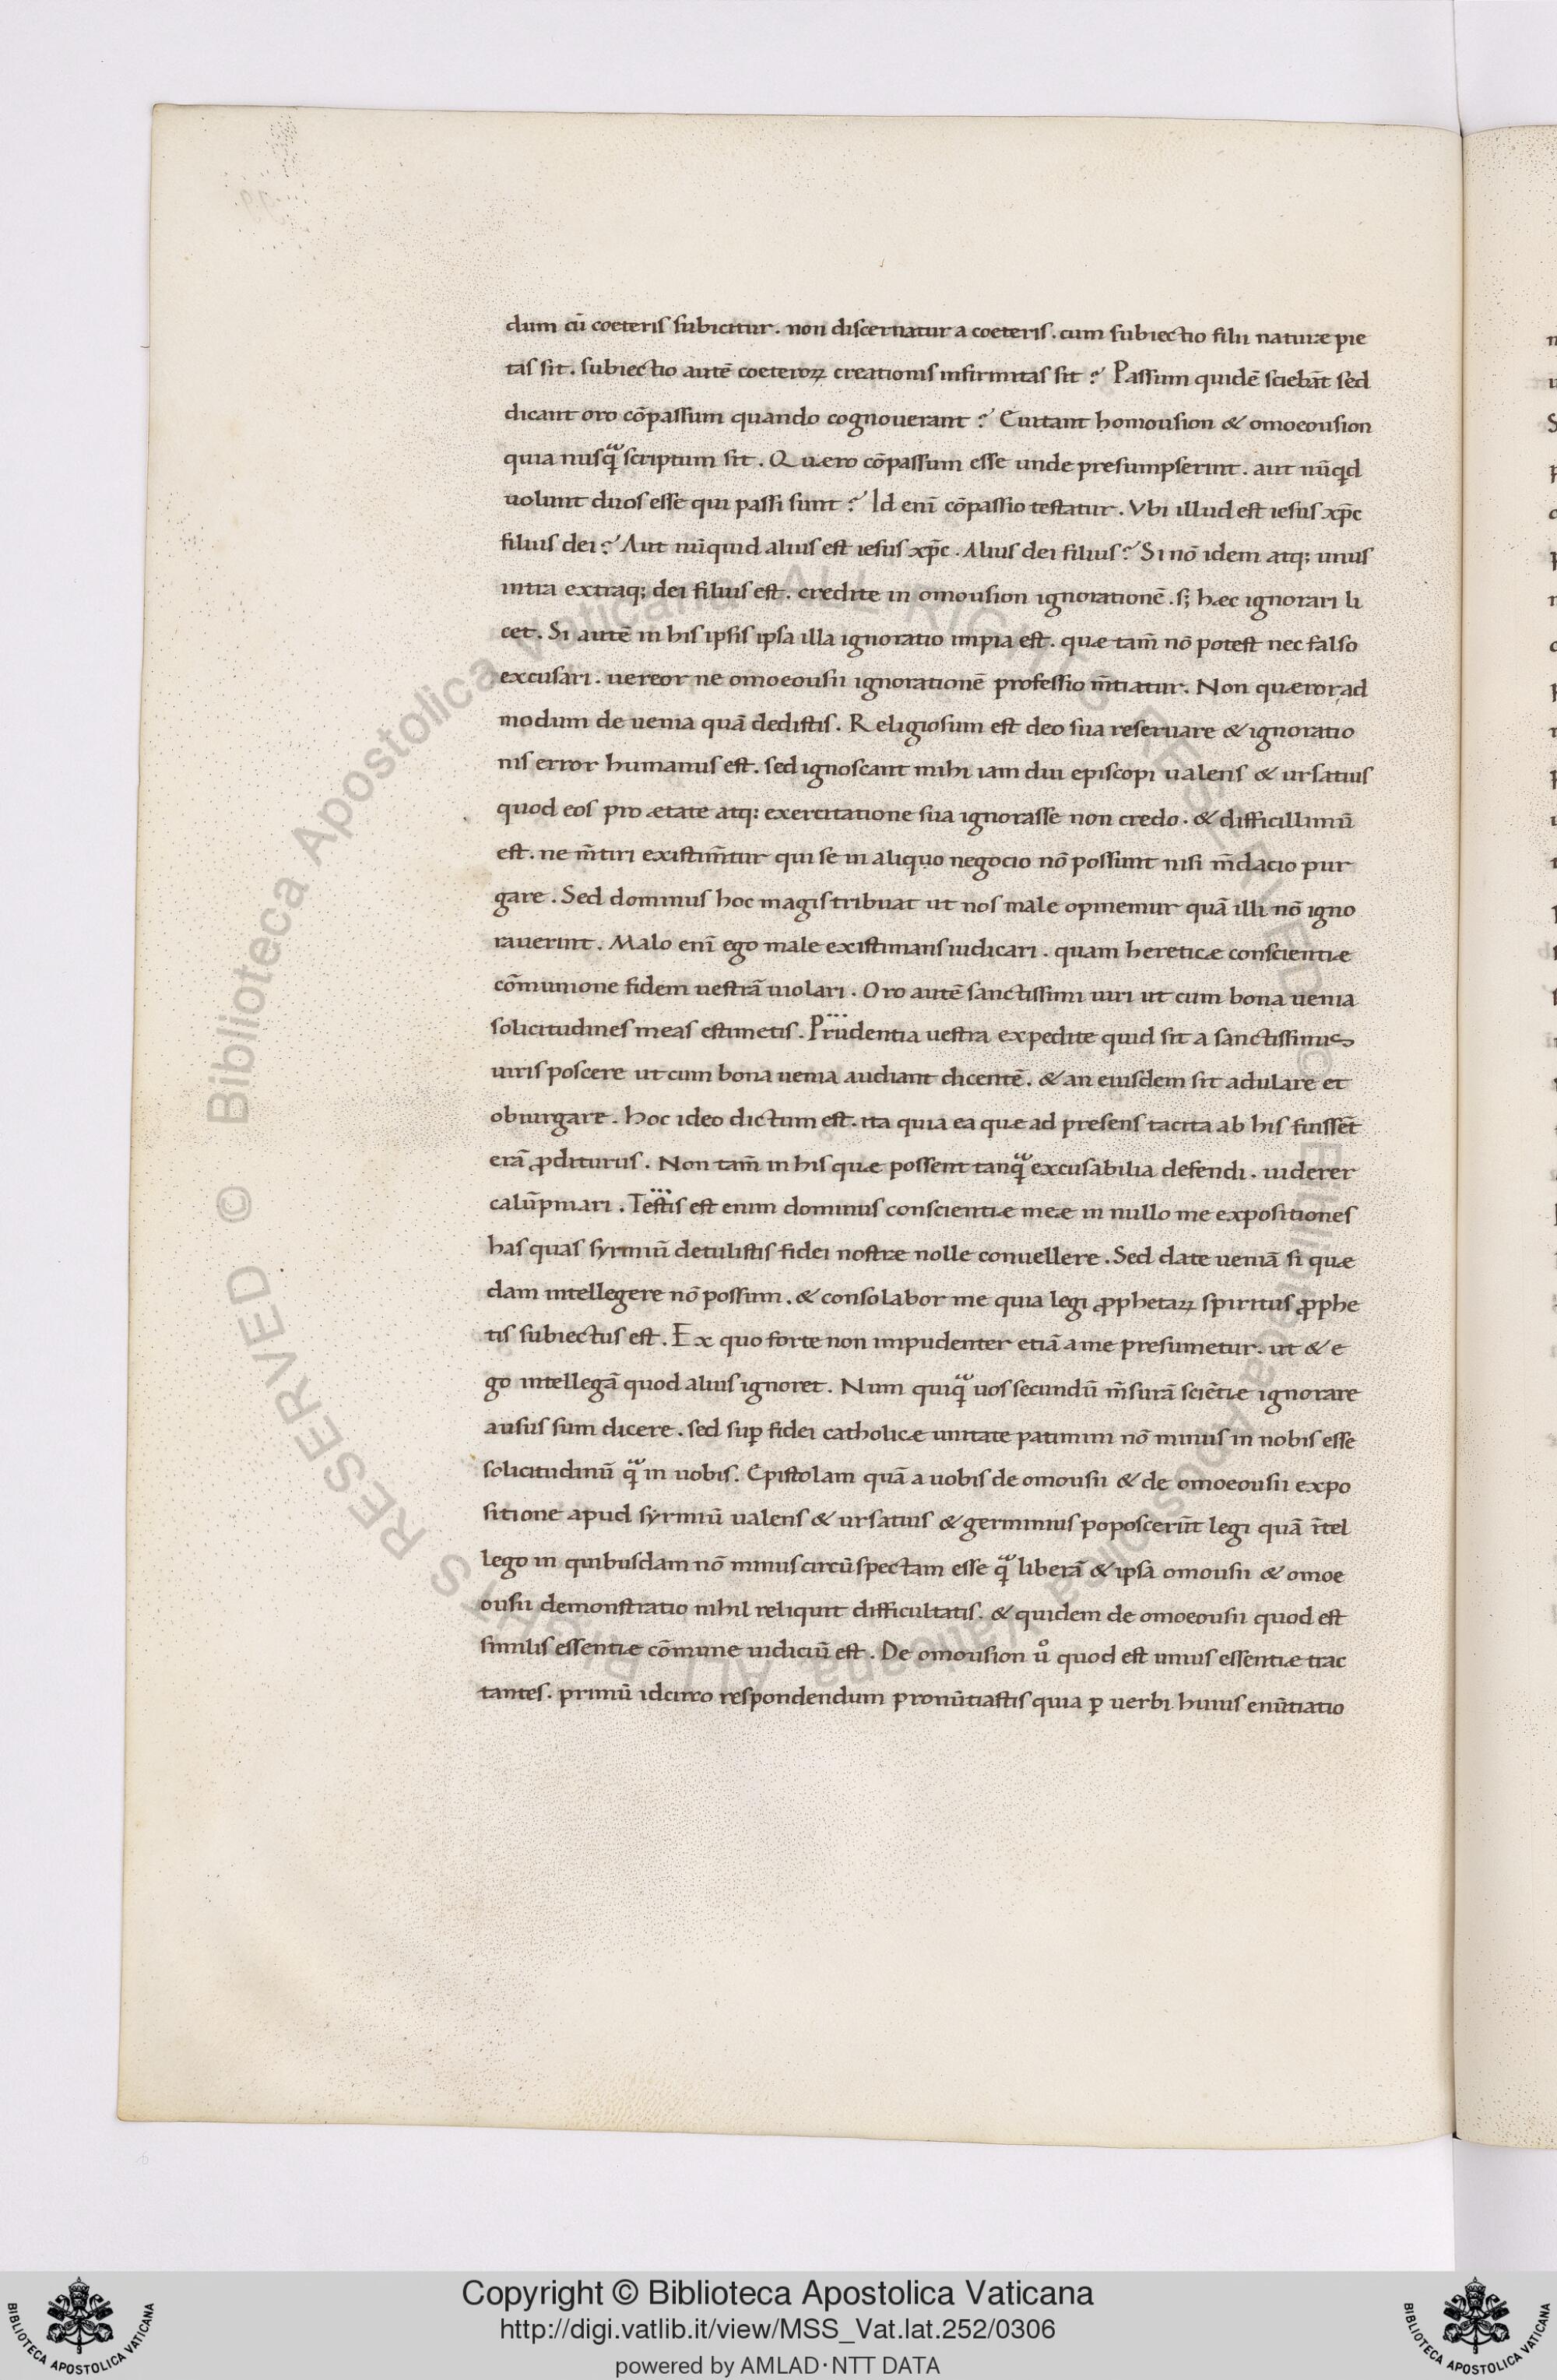 dum cū coeteris subicitur. non discernatur a coeteris. cum subiectio filii naturæ pie
tas sit. subiectio autē coeteroꝝ creationis infirmitas sit? Passum quidē sciebāt sed
dicant oro cōpassum quando cognouerant? Euitant homousion & omoeousion
quia nusqͣ̃ scriptum sit. Quero cōpassum esse unde presumpserint. aut nūqd
uolunt duos esse qui passi sunt? Id enī cōpassio testatur. Vbi illud est iesus xp̄c
filius dei? Aut nūquid alius est iesus xp̄c. Alius dei filius? Si nō idem atq; unus
intra extraq; dei filius est. credite in omousion ignorationē. s; hæc ignorari li
cet. Si autē in his ipsis ipsa illa ignoratio impia est. quæ tam̄ nō potest nec falso
excusari. uereor ne omoeousii ignorationē professio m̄tiatur. Non quæror ad
modum de uenia quā dedistis. Religiosum est deo sua reseruare & ignoratio
nis error humanus est. sed ignoscant mihi iam diu episcopi ualens & ursatius
quod eos pro ætate atq: exercitatione sua ignorasse non credo. & difficillimū
est. ne m̄tiri existim̄tur qui se in aliquo negocio nō possunt nisi m̄dacio pur
gare. Sed dominus hoc magis tribuat ut nos male opinemur quā illi nō igno
rauerint. Malo enī ego male existimans iudicari. quam hereticæ conscientiæ
cōmunione fidem uestrā uiolari. Oro autē sanctissimi uiri ut cum bona uenia
solicitudines meas estimetis. Prudentia uestra expedite quid sit a sanctissimis
uiris poscere ut cum bona uenia audiant dicentē. & an eiusdem sit adulare et
obiurgare. hoc ideo dictum est. ita quia ea quæ ad presens tacita ab his fuissēt
erā ꝓditurus. Non tam̄ in his quæ possent tanqͣ̃ excusabilia defendi. uiderer
calūpniari. Testis est enim dominus conscientiæ meæ in nullo me expositiones
has quas syrmiū detulistis fidei nostræ nolle conuellere. Sed date ueniā si quæ
dam intellegere nō possum. & consolabor me quia legi ꝓphetaꝝ spiritus ꝓphe
tis subiectus est. Ex quo forte non impudenter etiā a me presumetur. ut & e
go intellegā quod alius ignoret. Num quiqͣ̃ uos secundū m̄surā sciētiæ ignorare
ausus sum dicere. sed suꝑ fidei catholicæ unitate patimini nō minus in nobis esse
solicitudinū qͣ̃ in uobis. Epistolam quā a uobis de omousii & de omoeousii expo
sitione apud syrmiū ualens & ursatius & germinius poposcerūt legi quā ītel
lego in quibusdam nō minus circūspectam esse qͣ̃ liberā & ipsa omousii & omoe
ousii demonstratio nihil reliquit difficultatis. & quidem de omoeousii quod est
similis essentiæ cōmune iudiciū est. De omousion uº quod est unius essentiæ trac
tantes. primū idcirco respondendum pronūtiastis quia ꝑ uerbi huius enūtiatio
© Biblioteca Apostolica Vaticana ALL RIGHTS RESERVED © Biblioteca Apostolica Vaticana ALL RIGHTS RESERVED
BIBLIOTECA APOSTOLICA VATICANA
Copyright © Biblioteca Apostolica Vaticana
http://digi.vatlib.it/view/MSS_Vat.lat.252/0306
powered by AMLAD·NTT DATA
BIBLIOTECA APOSTOLICA VATICANA